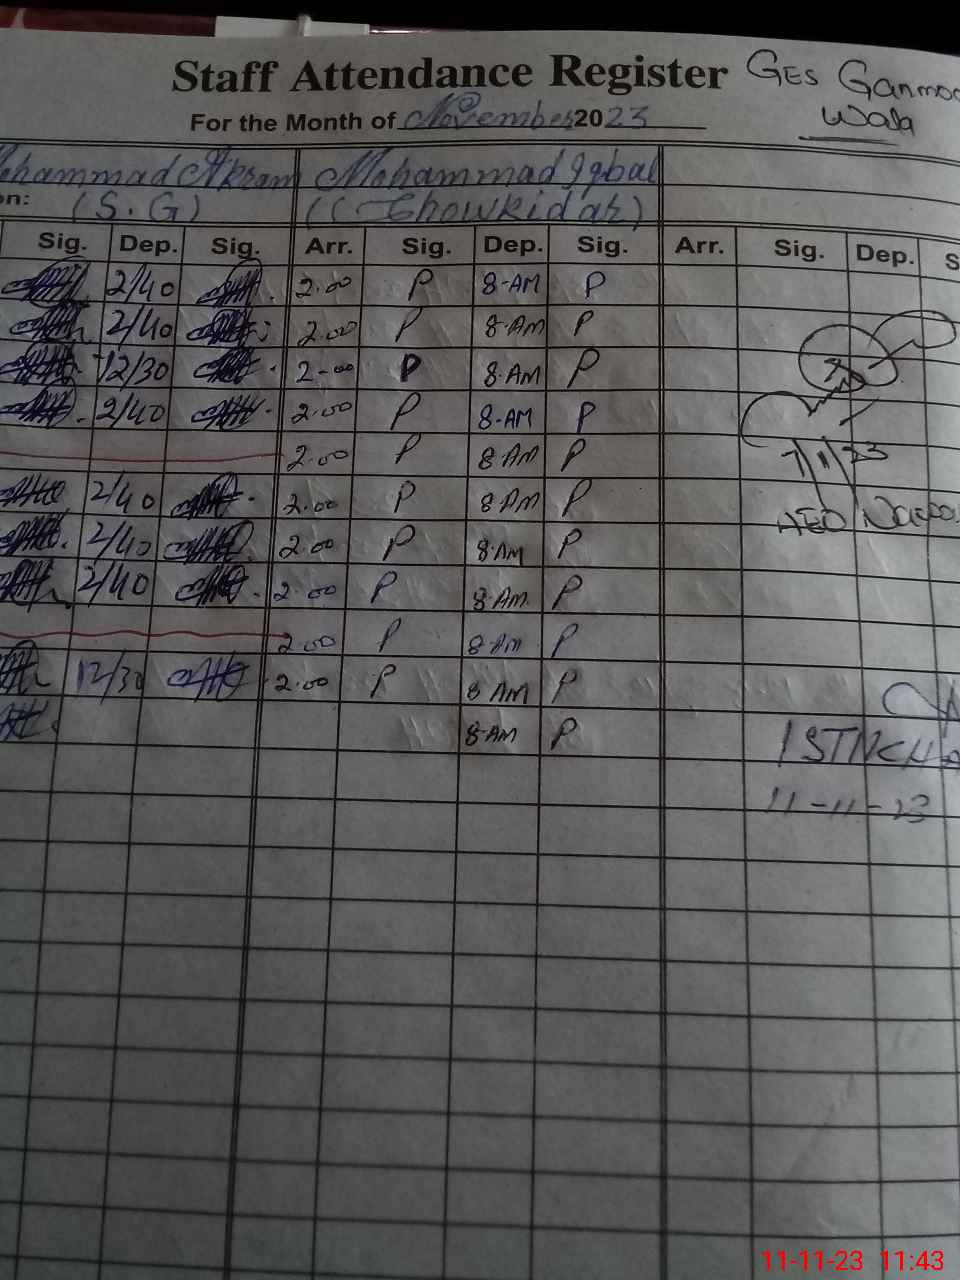 Staff Attendance Register GES Ganmoo
Wala
For the Month of November 2023
ohammad Akram Mohammad Iqbal
on: (S.G) (Chowkidar)
Sig. Dep. Sig. Arr. Sig. Dep. Sig. Arr. Sig. Dep. S
2/40 2.00 P 8-AM P
2/40 2.00 P 8-AM P
12/30 2-00 P 8-AM P
2/40 2.00 P 8-AM P
2.00 P 8AM P 7/11/23
2/40 2.00 P 8AM P AEO
2/40 2.00 P 8-AM P
2/40 2.00 P 8-AM P
2.00 P 8AM P
12/30 2.00 P 8 AM P
8-AM P
11-11-23
11-11-23 11:43